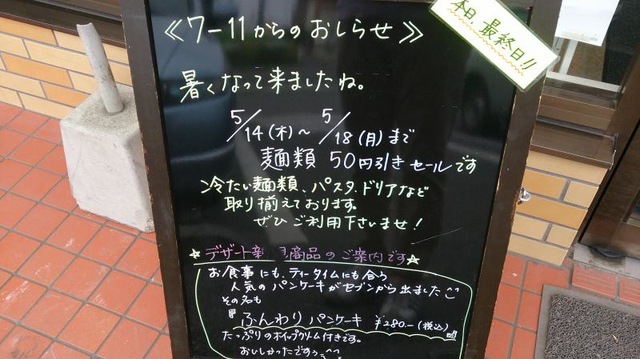 ≪7-11からのおしらせ≫
本日 最終日!!
暑くなって来ましたね。
5/14(木)～5/18(月)まで
麺類 50円引きセールです
冷たい麺類、パスタ、ドリアなど
取り揃えております。
ぜひご利用下さいませ!
★デザート新商品のご案内です★
お食事にも、ティータイムにも合う
人気のパンケーキがセブンから出ました^^
その名も
『ふんわりパンケーキ ¥280-(税込)』
たっぷりのホイップクリム付きです。
おいしかったですぅ~^^